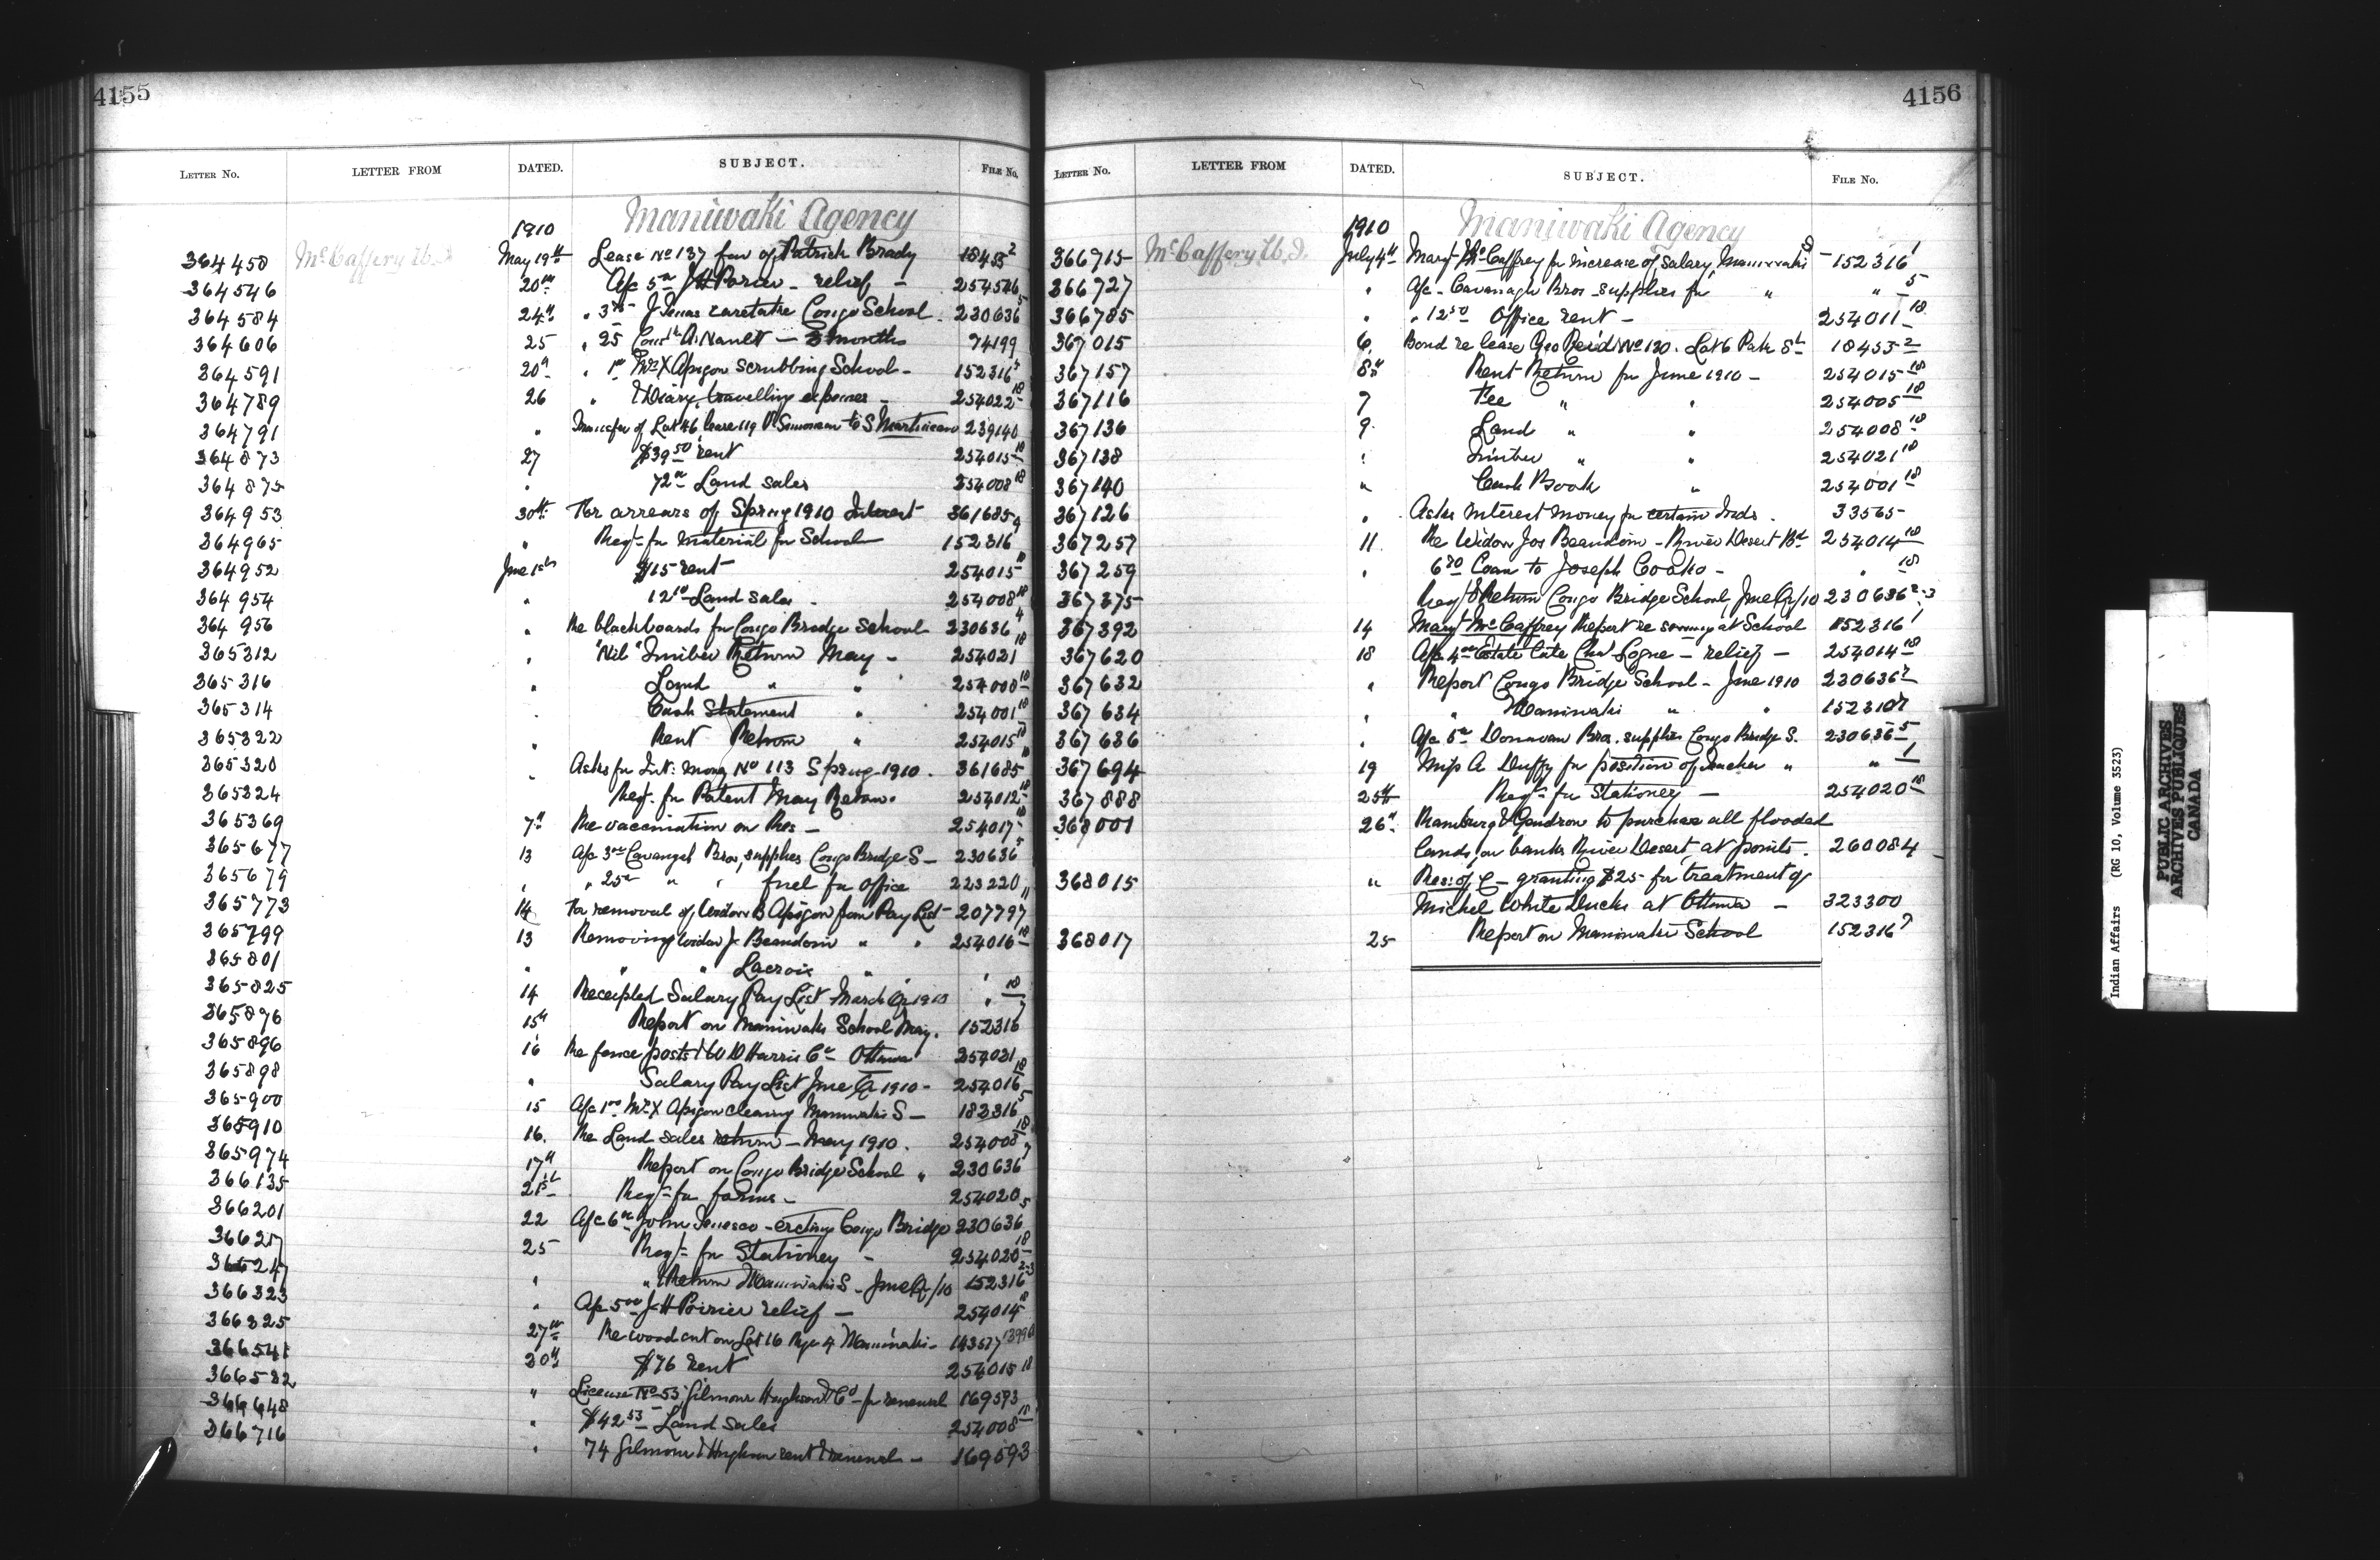 4155
LETTER NO. LETTER FROM DATED. SUBJECT. FILE No.
1910 Maniwaki Agency
364450 McCaffery W.J. May 19th Lease No 137 favr of Patrick Brady 18455 2
364546 20th A/c 5 00 J H Poirier - relief - 254546
364584 24th " 3 75 J Tenas caretaker Congo School. 230636 5
364606 25 " 25 A. Nault - 3 months 74199
364591 20th " 1 00 Mrs X Apigon scrubbing School - 152316 5
364789 26 " & Diary, travelling expenses - 254022 18
364791 " Transfer of Lot 46 lease 119 P. to S Martineau 239140
364873 27 $39 50 rent 254015 18
364875 " 72 00 Land sales 254008 18
364953 30th For arrears of Spring 1910 Interest 361685
364965 " Reqt for material for School 152316 9
364952 June 1st $15 rent 254015 18
364954 " 12 10 Land sales - 254008 18
364956 " Re blackboards for Congo Bridge School 230636 4
365312 " "Nil" Timber Return May - 254021 18
365316 " Land " " 254008 18
365314 " Cash Statement " 254001 18
365322 " Rent Return " 254015 18
365320 " Asks for Int: money No 113 Spring 1910. 361685
365324 Reqt. for Patent May Return. 254012 18
365369 7th Re vaccination on Res - 254017 18
365677 13 A/c 3 00 Cavanagh Bros, supplies Congo Bridge S - 230636 5
365679 " " 25 00 " " fuel for office 223220
365773 14 For removal of Widow B Apigon from Pay List - 207797 11
365799 13 Removing Widow J. Beaudoin " " 254016 18
365801 " " " Lacroix " "
365825 14 Receipted Salary Pay List March Qr 1910 " 18
365896 15th Report on Maniwaki School May. 152316 7
365896 16 Re fence posts & W D Harris Co Ottawa 254021
365898 " Salary Pay List June Qr 1910 - 254016 18
365900 15 A/c 1 00 Mrs X Apigon cleaning Maniwaki S - 152316 5
365910 16. Re Land sales return - May 1910. 254008 18
365974 17th Report on Congo Bridge School " 230636 7
366135 21st Reqt for forms - 254020
366201 22 A/c 6 00 John Tenesco - erecting Congo Bridge 230636 5
366217 25 Reqt for Stationery - 254020 18
366247 " " & Return Maniwaki S - June Qr/10 152316 2-3
366323 " A/c 5 00 J H Poirier relief - 254014 18
366325 27th Re wood cut on Lot 16 Rge 4 Maniwaki - 143577
366541 30th $76 rent 254015 18
366582 " License No 53 Gilmour Hughson & Co for renewal 169593
366648 " $42 53 Land sales 254008 18
366716 " 74 Gilmour & Hughson rent & renewals - 169593
4156
LETTER NO. LETTER FROM DATED. SUBJECT. FILE No.
1910 Maniwaki Agency
366715 McCaffery W.J. July 4th Margt McCaffrey for increase of salary, Maniwaki S 152316 1
366727 " A/c - Cavanagh Bros supplies for " " 5
366785 " " 12 50 Office rent - 254011 18
367015 6 Bond re lease Geo Reid No 130. Lot 6 Pah St 18455 2
367157 8th Rent Return for June 1910 - 254015 18
367116 7 Fee " " 254005 18
367136 9 Land " " 254008 18
367138 " Timber " " 254021 18
367140 " Cash Book " 254001 18
367126 " Asks Interest money for certain Inds. 33565
367257 11. Re Widow Jos Beaudoin - River Desert Bd 254014 18
367259 " 6 80 Coan to Joseph Coako - " 18
367375 Reqt & Return Congo Bridge School, June Qr/10 230636 2-3
367392 14 Margt McCaffrey Report re sewing at School 152316 1
367620 18 A/c 4 00 Estate late Chas Logue - relief - 254014 18
367632 " Report Congo Bridge School - June 1910 230636 7
367634 " " Maniwaki " " 152316 7
367636 " A/c 5 00 Donovan Bros. supplies Congo Bridge S. 230636 5
367694 19 Miss A Duffy for position of Teacher " " 1
367888 25th Reqt for Stationery - 254020 18
368001 26th Ramburg & Gendron to purchase all flooded
lands on banks River Desert at points. 260084
368015 " Res: of C - granting $25 for treatment of
Michel White Duck at Ottawa - 323300
368017 25 Report on Maniwaki School 152316 7
Indian Affairs (RG 10, Volume 3523)
PUBLIC ARCHIVES
ARCHIVES PUBLIQUES
CANADA